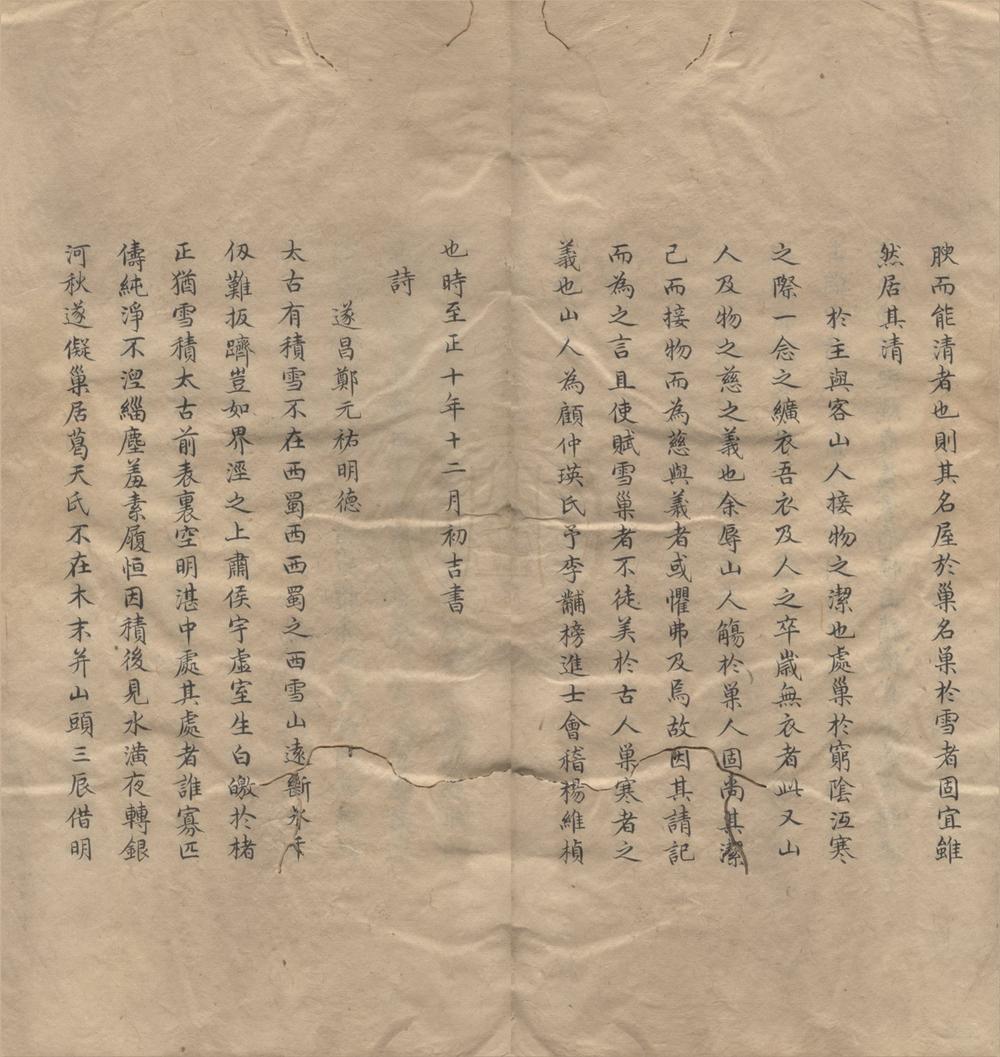 腴而能清者也則其名屋於巢名巢於雪者固宜雖
然居其清
於主與客山人接物之潔也處巢於窮陰沍寒
之際一念之纊衣吾衣及人之卒歲無衣者此又山
人及物之慈之義也余辱山人觴於巢人固尚其潔
己而接物而為慈與義者或懼弗及焉故因其請記
而為之言且使賦雪巢者不徒美於古人巢寒者之
義也山人為顧仲瑛氏予李黼榜進士會稽楊維楨
也時至正十年十二月初吉書
詩
遂昌鄭元祐明德
太古有積雪不在西蜀西西蜀之西雪山遠斷
仞難扳躋豈如界溼之上肅侯宇虛室生白皦於楮
正猶雪積太古前表裏空明湛中處其處者誰寡匹
儔純淨不涅緇塵羞素履恒因積後見水潢夜轉銀
河秋遂儗巢居葛天氏不在木末并山頭三辰借明